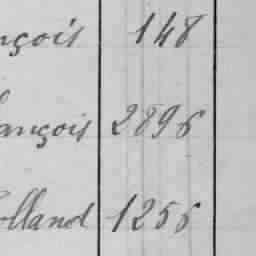 nçois 148
ançois 2896
olland 1256